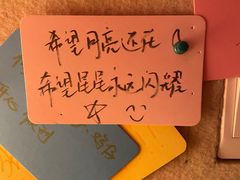 希望月亮还在
希望星星永远闪耀